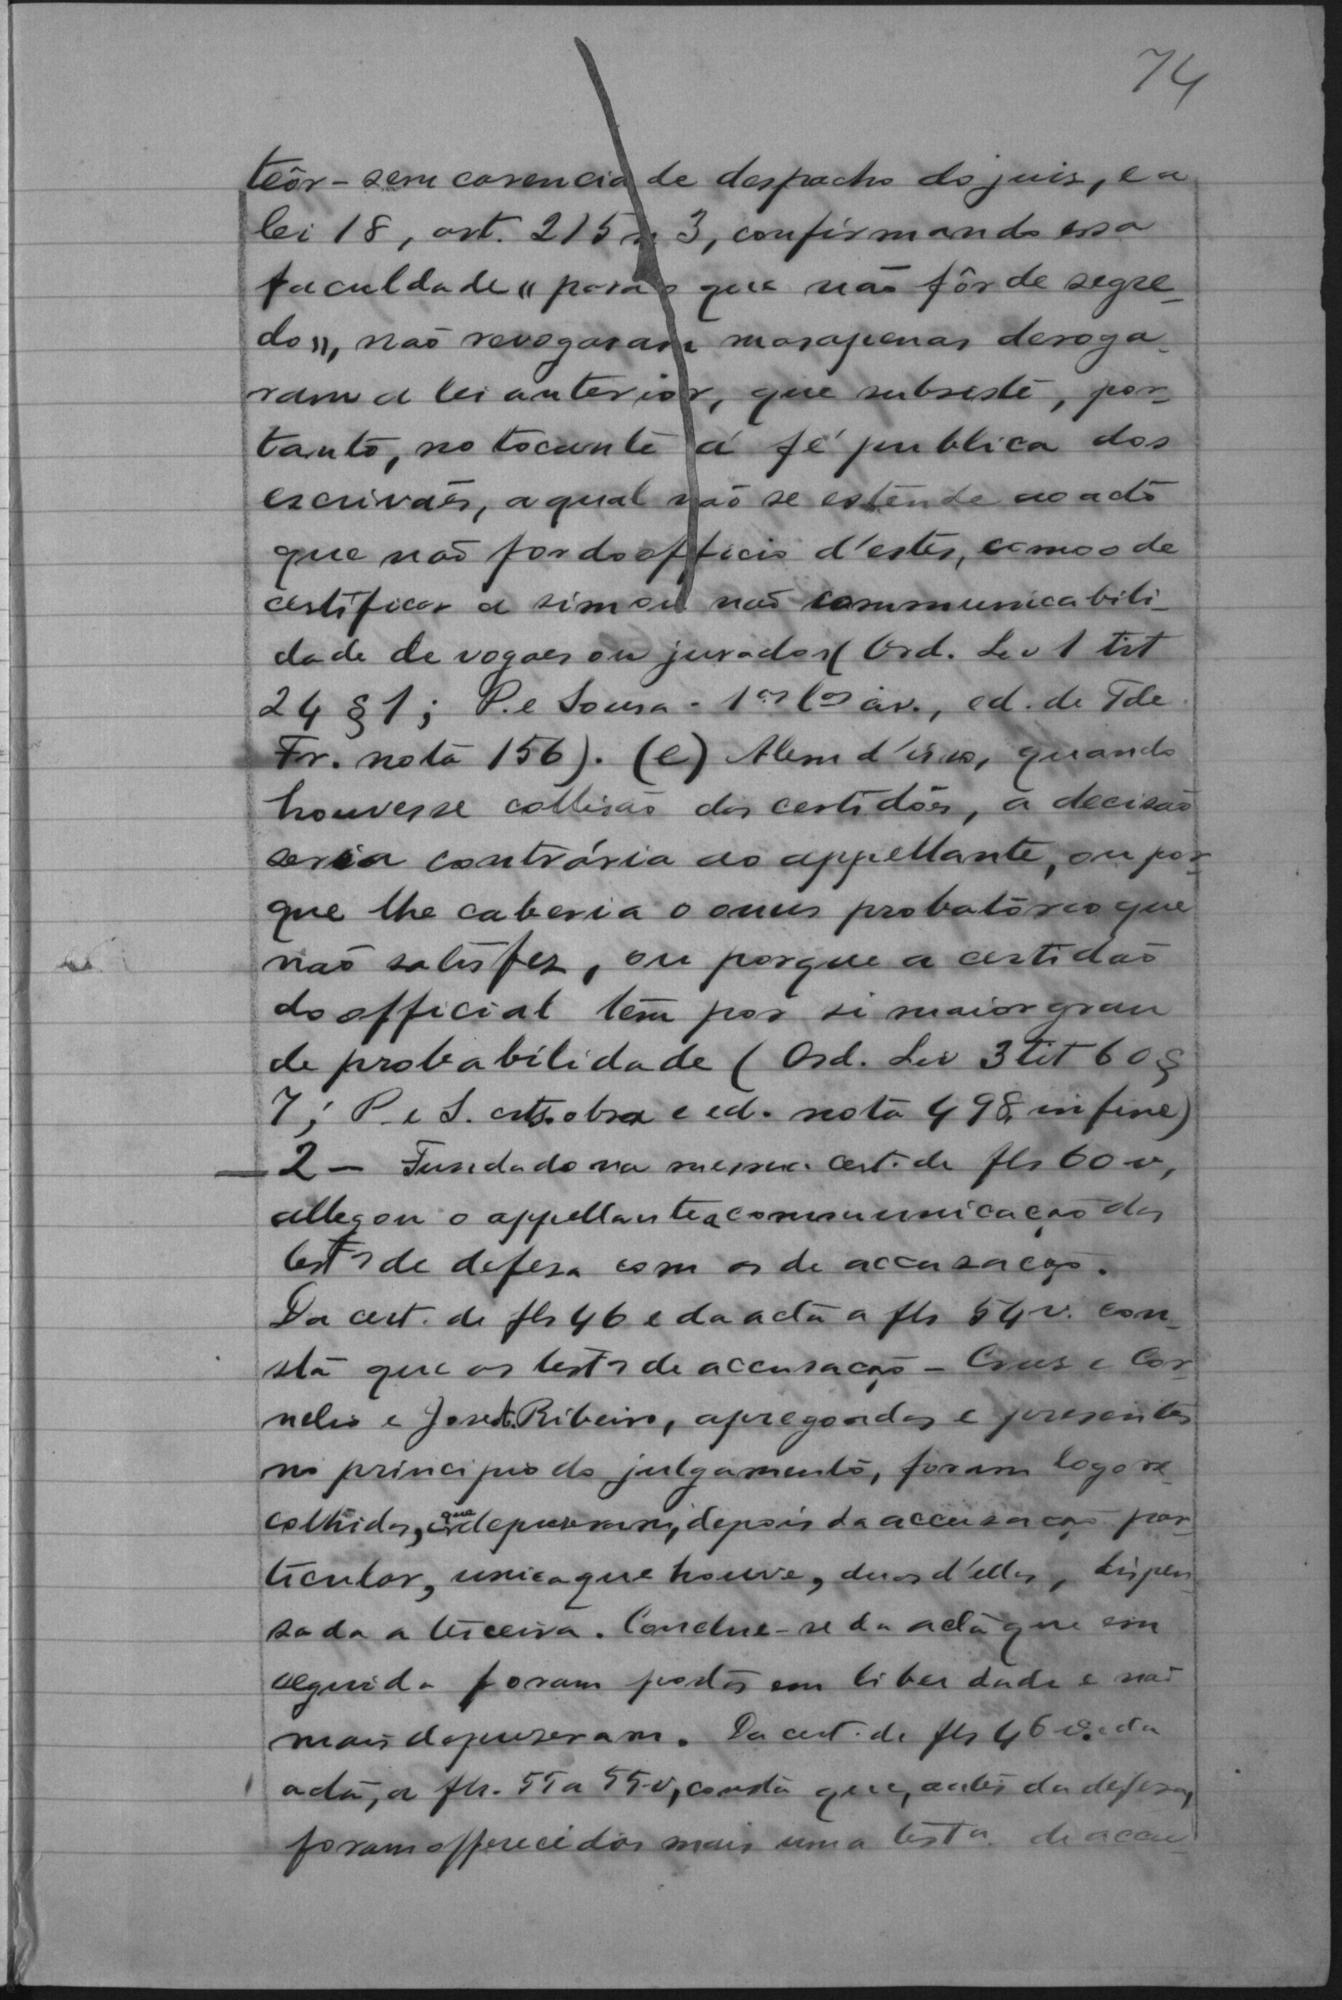 74
teôr - sem carencia de despacho do juis, e a
lei 18, art. 215 n. 3, confirmando essa
faculdade "para o que não fôr de segre-
do", não revogaram mas apenas deroga-
ram a lei anterior, que subsiste, por-
tanto, no tocante á fé publica dos
escrivães, a qual não se estende ao acto
que não for do officio d'estes, como o de
certificar a sim ou não communicabili-
dade de vogaes ou jurados (Ord. Liv 1 tit
24 § 1; P. e Sousa - 1as l as civ., ed. de T de
Fr. nota 156). (e) Alem d'isso, quando
houvesse collisão das certidões, a decisão
seria contrária ao appellante, ou por-
que lhe caberia o onus probatório que
não satisfez, ou porque a certidão
do official tem por si maior grau
de probabilidade (Ord. Liv 3 tit 60 §
7; P. e S. cit. obra e ed. nota 498, in fine)
- 2 - Fundado na mesma cert. de fls 60 v,
allegou o appellante a communicação das
test as de defesa com as de accusação.
Da cert. de fls 46 e da acta a fls 54 v. con-
sta que as test as de accusação - Cruz e Cor-
nelio e José A. Ribeiro, apregoadas e presentes
no principio do julgamento, foram logo re-
colhidas, e que depuseram, depois da accusação par-
ticular, unica que houve, duas d'ellas, dispen-
sada a terceira. Conclue-se da acta que em
seguida foram postas em liberdade e não
mais depuseram. Da cert. de fls 46 v. e da
acta, a fls. 55 a 55 v, consta que, antes da defesa,
foram offerecidas mais uma test a. de accu-